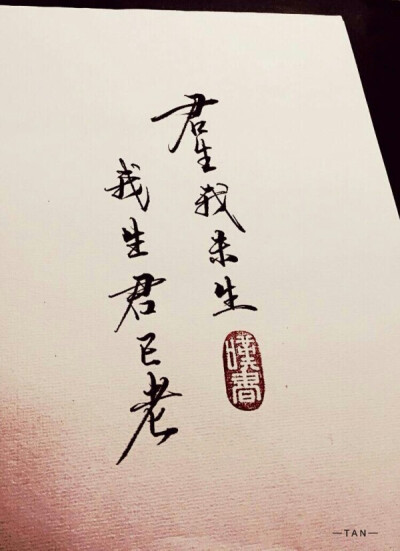 君生我未生
我生君已老
暵書
—TAN—